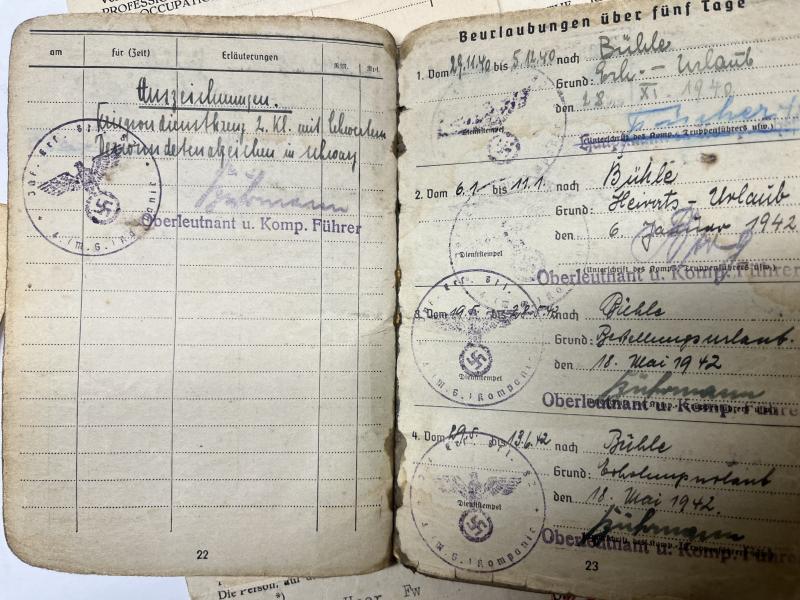 PROFESSIO
OCCUPATION
am
für (Zeit)
Erläuterungen
RM.
Rpf.
Auszeichnungen.
2. Kl. mit Schwertern
in schwarz
Buhrmann
Oberleutnant u. Komp. Führer
22
Beurlaubungen über fünf Tage
1. Vom 29.11.40 bis 5.12.40 nach Bühle
Grund: Erh. - Urlaub
den 28. XI. 1940
Dienststempel
(Unterschrift des Komp.-, Truppenführers usw.)
2. Vom 6.1. bis 11.1. nach Bühle
Grund: Heirats - Urlaub
den 6. Januar 1942
Dienststempel
(Unterschrift des Komp.-, Truppenführers usw.)
Oberleutnant u. Komp. Führer
3. Vom 19.5. bis 22.5.42 nach Bühle
Grund: Bestellungsurlaub.
18. Mai 1942
Dienststempel
Buhrmann
Oberleutnant u. Komp. Führer
4. Vom 29.5. bis 13.6.42 nach Bühle
Grund: Erholungsurlaub
den 18. Mai 1942.
Dienststempel
Buhrmann
Oberleutnant u. Komp. Führer
23
Die Person, auf
*)
Fw